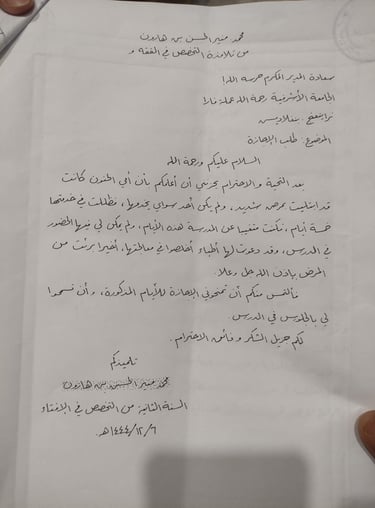 محمد منير الحسن بن هارون
من تلامذة التخصص في الفقه و
سعادة المدير المكرم حرسه الله!
الجامعة الأشرفية رحمة الله
نراينغنج، بنغلاديش
الموضوع: طلب الإجازة
السلام عليكم ورحمة الله
بعد التحية والاحترام يحزنني أن أعلمكم بأن أمي الحنون كانت
قد ابتليت بمرض شديد، ولم يكن أحد سواي يخدمها، فظللت في خدمتها
خمسة أيام، فكنت متغيبا عن المدرسة هذه الأيام، ولم يمكن لي فيها الحضور
في الدرس، وقد دعوت لها أطباء أخلصوا في معالجتها، أخيرا برئت من
المرض بإذن الله جل وعلا.
فألتمس منكم أن تمنحوني الإجازة للأيام المذكورة، وأن تسمحوا
لي بالجلوس في الدرس.
لكم جزيل الشكر وفائق الاحترام.
تلميذكم
محمد منير الحسن بن هارون
السنة الثانية من التخصص في الإفتاء
١٤٤٤/١٢/٦هـ